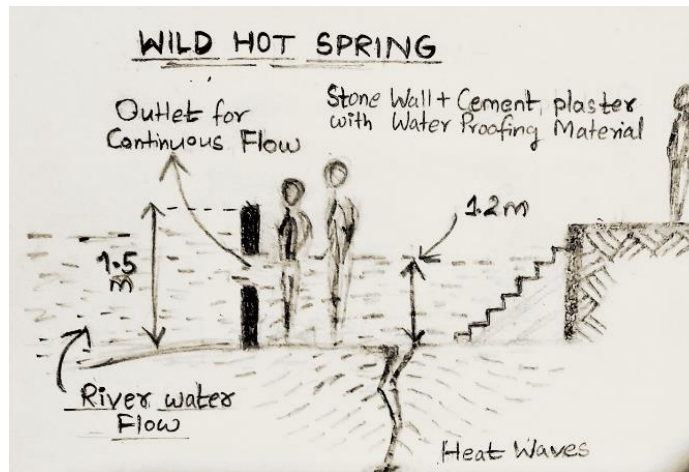 WILD HOT SPRING
Outlet for
Continuous Flow
Stone Wall + Cement plaster
with Water Proofing Material
1.2 m
1.5
m
River water
Flow
Heat Waves